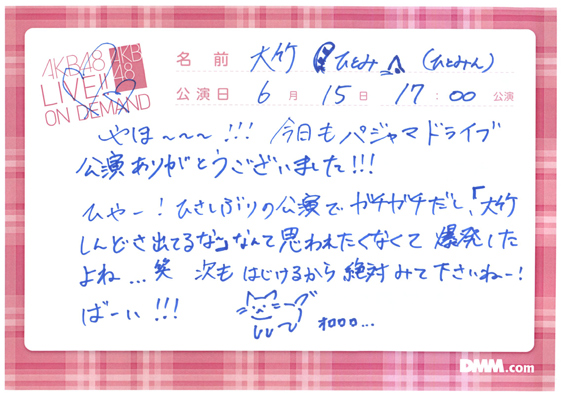 AKB48 AKB48
LIVE!!
ON DEMAND
名前 大竹 ひとみ (ひとみん)
公演日 6月 15日 17:00 公演
やほ〜〜〜!!! 今日もパジャマドライブ
公演ありがとうございました!!!
ひゃー!ひさしぶりの公演でガチガチだし、「大竹
しんどさ出てるな〜」なんて思われたくなくて 爆発した
よね...笑 次も はじけるから 絶対みて下さいねー!
ばーい!!!
DMM.com